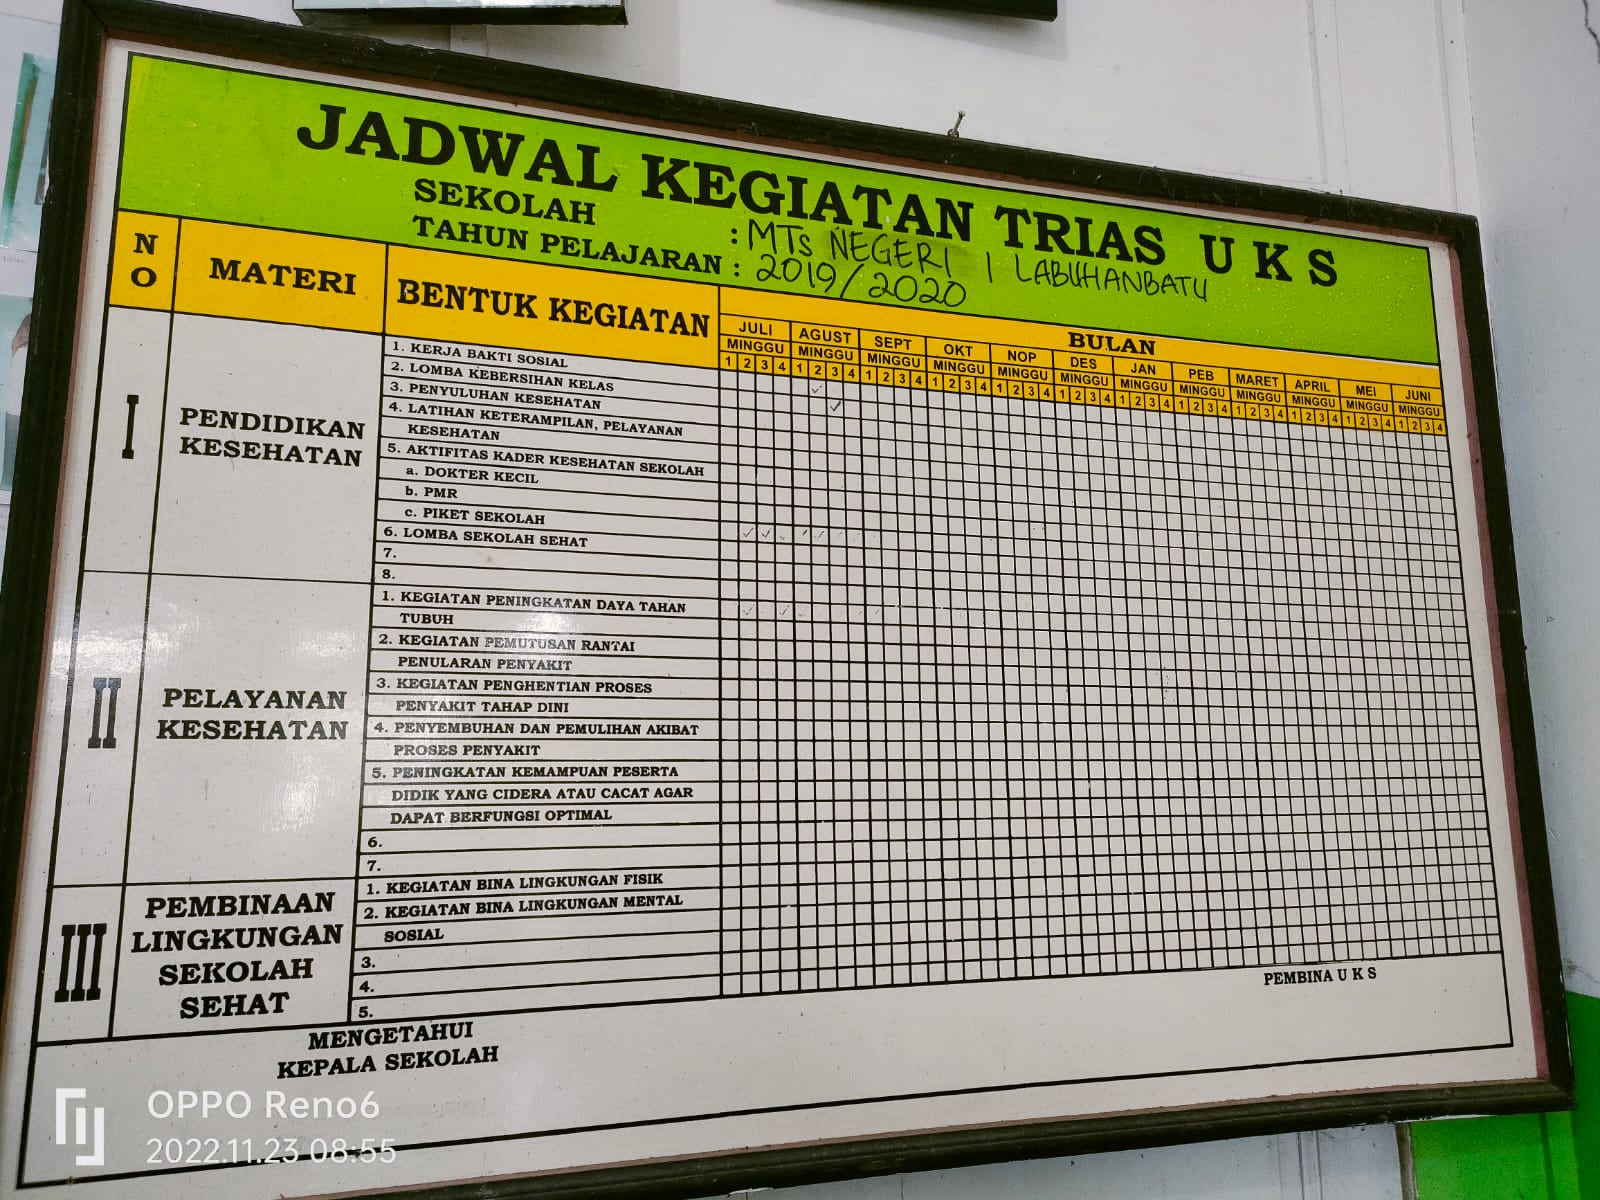 JADWAL KEGIATAN TRIAS U K S
SEKOLAH : MTs NEGERI 1 LABUHANBATU
TAHUN PELAJARAN : 2019/2020
NO
MATERI
BENTUK KEGIATAN
BULAN
JULI AGUST SEPT OKT NOP DES JAN PEB MARET APRIL MEI JUNI
MINGGU MINGGU MINGGU MINGGU MINGGU MINGGU MINGGU MINGGU MINGGU MINGGU MINGGU MINGGU
1 2 3 4 1 2 3 4 1 2 3 4 1 2 3 4 1 2 3 4 1 2 3 4 1 2 3 4 1 2 3 4 1 2 3 4 1 2 3 4 1 2 3 4 1 2 3 4
I
PENDIDIKAN
KESEHATAN
1. KERJA BAKTI SOSIAL
2. LOMBA KEBERSIHAN KELAS
3. PENYULUHAN KESEHATAN
4. LATIHAN KETERAMPILAN, PELAYANAN
KESEHATAN
5. AKTIFITAS KADER KESEHATAN SEKOLAH
a. DOKTER KECIL
b. PMR
c. PIKET SEKOLAH
6. LOMBA SEKOLAH SEHAT
7.
8.
II
PELAYANAN
KESEHATAN
1. KEGIATAN PENINGKATAN DAYA TAHAN
TUBUH
2. KEGIATAN PEMUTUSAN RANTAI
PENULARAN PENYAKIT
3. KEGIATAN PENGHENTIAN PROSES
PENYAKIT TAHAP DINI
4. PENYEMBUHAN DAN PEMULIHAN AKIBAT
PROSES PENYAKIT
5. PENINGKATAN KEMAMPUAN PESERTA
DIDIK YANG CIDERA ATAU CACAT AGAR
DAPAT BERFUNGSI OPTIMAL
6.
7.
III
PEMBINAAN
LINGKUNGAN
SEKOLAH
SEHAT
1. KEGIATAN BINA LINGKUNGAN FISIK
2. KEGIATAN BINA LINGKUNGAN MENTAL
SOSIAL
3.
4.
5.
MENGETAHUI
KEPALA SEKOLAH
PEMBINA U K S
OPPO Reno6
2022.11.23 08:55